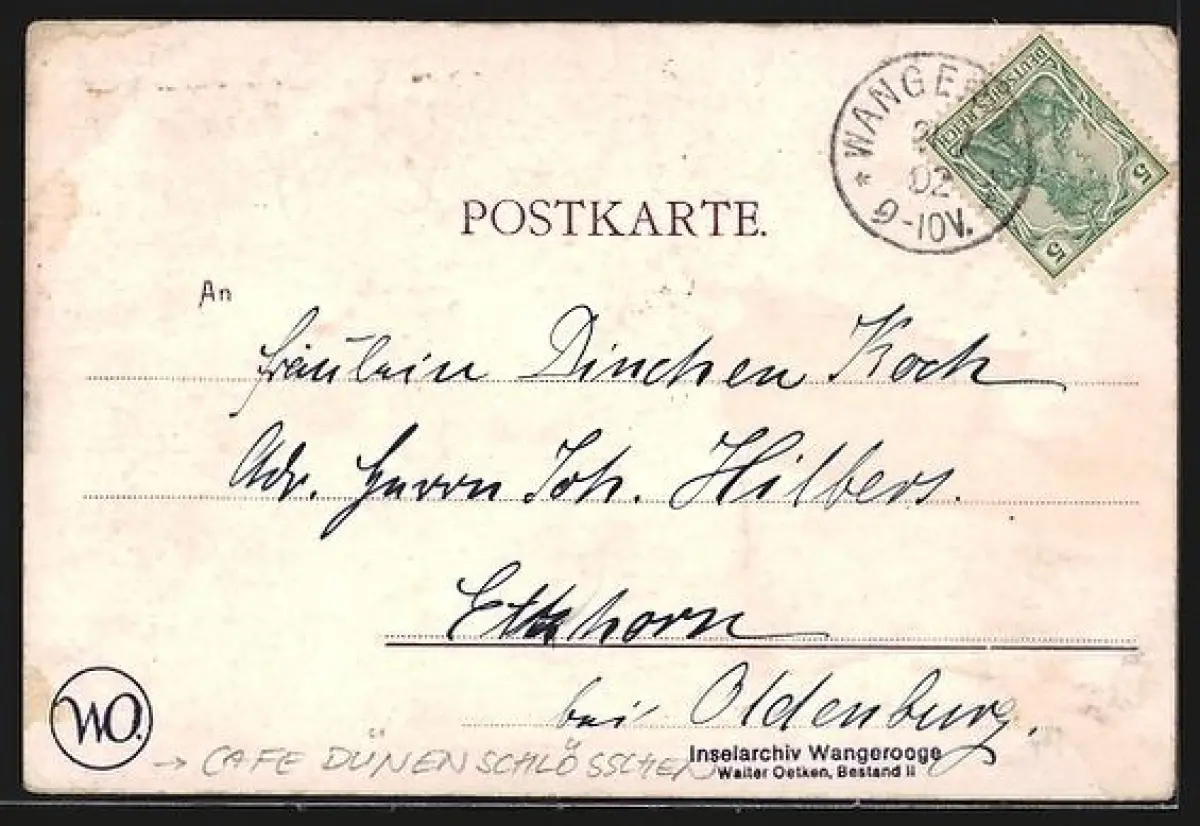 WANGE
02
9-10V.
DEUTSCHES REICH
5
5
POSTKARTE.
An
Fräulein Dinchen Koch
Adr. Herrn Joh. Hilbers.
Etzhorn
bei Oldenburg.
WO.
→ CAFE DÜNENSCHLÖSSCHEN
Inselarchiv Wangerooge
Walter Oetken, Bestand II